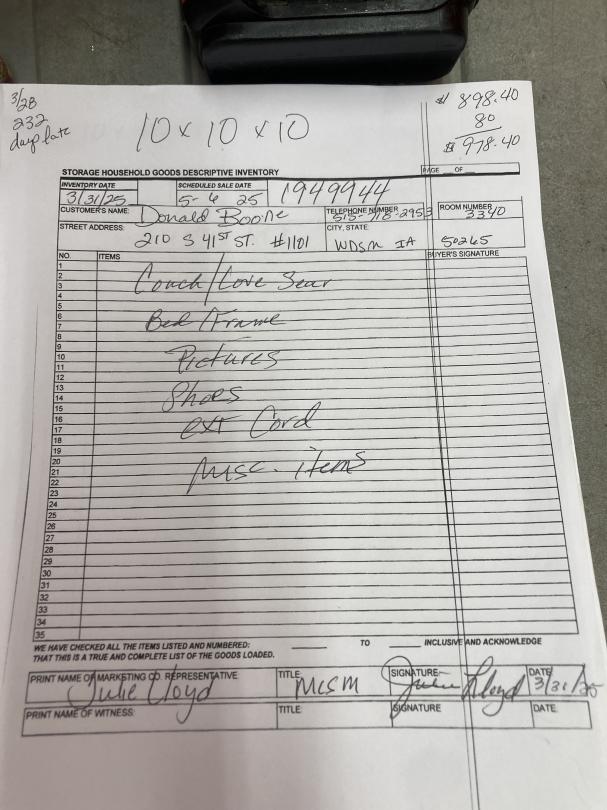 3/28
232
days late
10 x 10 x 10
$ 898.40
80
$ 978.40
STORAGE HOUSEHOLD GOODS DESCRIPTIVE INVENTORY
PAGE OF
INVENTORY DATE
3/31/25
SCHEDULED SALE DATE
5-6 25
1949944
CUSTOMER'S NAME: Donald Boone
TELEPHONE NUMBER
515-718-2953
ROOM NUMBER
3340
STREET ADDRESS: 210 S 41ST ST. #1101
CITY, STATE:
WDSM IA 50265
NO. ITEMS BUYER'S SIGNATURE
1
2
3 Couch/Love Seat
4
5
6 Bed/Frame
7
8
9
10 Pictures
11
12
13
14 Shoes
15
16 ext Cord
17
18
19
20
21 Misc. items
22
23
24
25
26
27
28
29
30
31
32
33
34
35
WE HAVE CHECKED ALL THE ITEMS LISTED AND NUMBERED: TO INCLUSIVE AND ACKNOWLEDGE
THAT THIS IS A TRUE AND COMPLETE LIST OF THE GOODS LOADED.
PRINT NAME OF MARKETING CO. REPRESENTATIVE
Julie Lloyd
TITLE
MCSM
SIGNATURE
Julie Lloyd
DATE
3/31/25
PRINT NAME OF WITNESS: TITLE SIGNATURE DATE